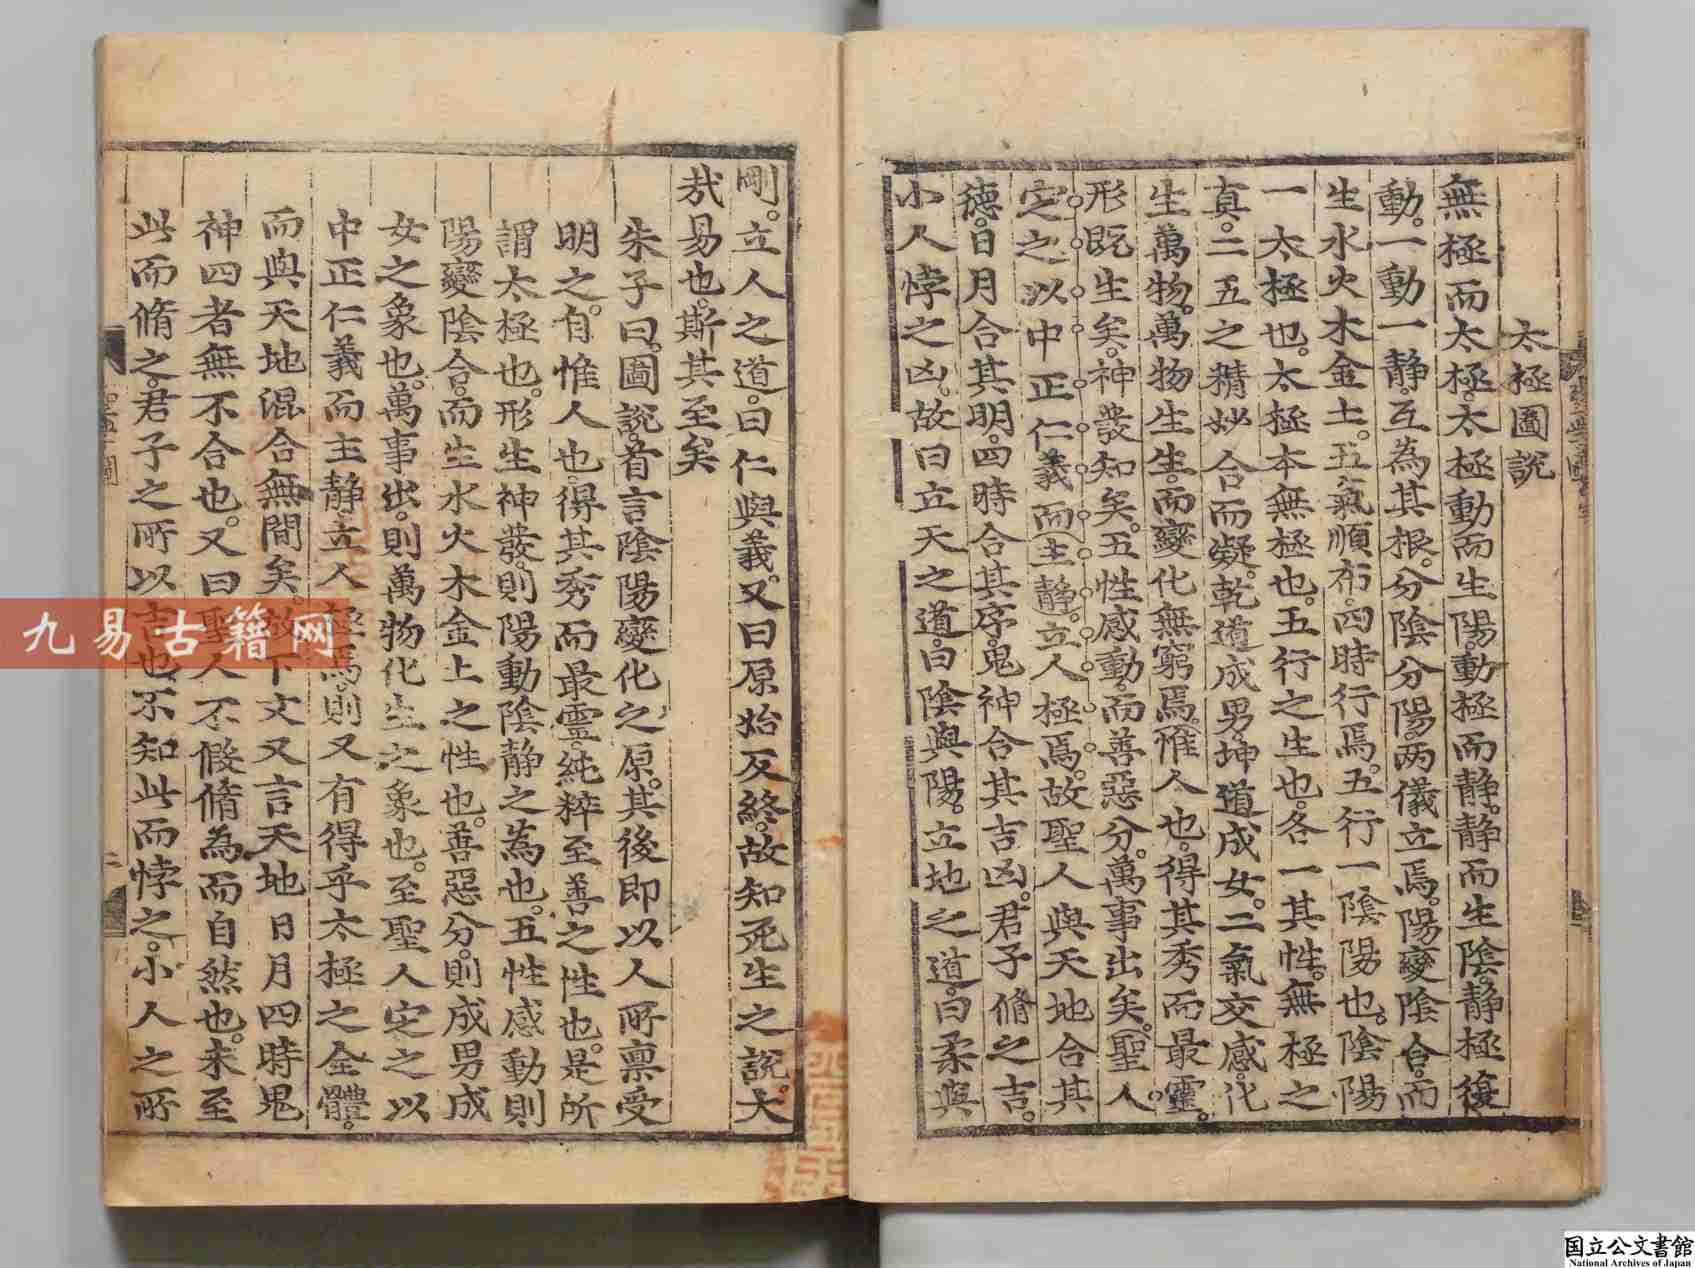 太極圖說
無極而太極。太極動而生陽。動極而静。静而生陰。静極復
動。一動一静。互為其根。分陰分陽。两儀立焉。陽變陰合。而
生水火木金土。五氣順布。四時行焉。五行一陰陽也。陰陽
一太極也。太極本無極也。五行之生也。各一其性。無極之
真。二五之精妙合而凝。乾道成男。坤道成女。二氣交感。化
生萬物。萬物生生。而變化無窮焉。惟人也。得其秀而最靈。
形既生矣。神發知矣。五性感動。而善惡分。萬事出矣。聖人
定之以中正仁義而主静。立人極焉。故聖人與天地合其
德。日月合其明。四時合其序。鬼神合其吉凶。君子脩之吉。
小人悖之凶。故曰立天之道。曰陰與陽。立地之道。曰柔與
剛。立人之道。曰仁與義。又曰原始反終。故知死生之說。大
㢤易也。斯其至矣
朱子曰。圖說。首言陰陽變化之原。其後即以人所禀受
明之。自惟人也。得其秀而最靈。純粹至善之性也。是所
謂太極也。形生神發。則陽動陰静之為也。五性感動則
陽變陰合。而生水火木金土之性也。善惡分。則成男成
女之象也。萬事出。則萬物化生之象也。至聖人定之以
中正仁義而主静。立人極焉。則又有得乎太極之全體。
而與天地混合無間矣。故下文又言天地日月四時鬼
神四者無不合也。又曰聖人不假脩為而自然也。未至
此而脩之。君子之所以吉也。不知此而悖之。小人之所
二
九易古籍网
国立公文書館
National Archives of Japan